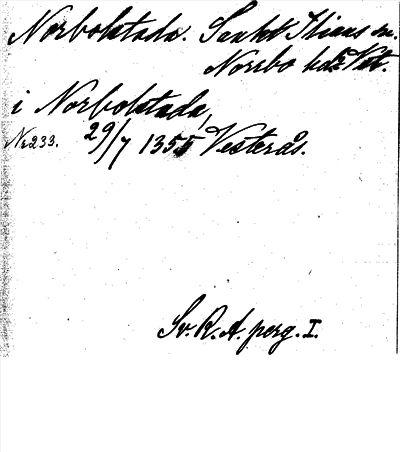 Norbolstada. Sankt Ilians sn.
Norrbo hd. Vst.
i Norbolstada,
Nr 233. 29/7 1355 Vesterås.
Sv. R. A. perg. I.